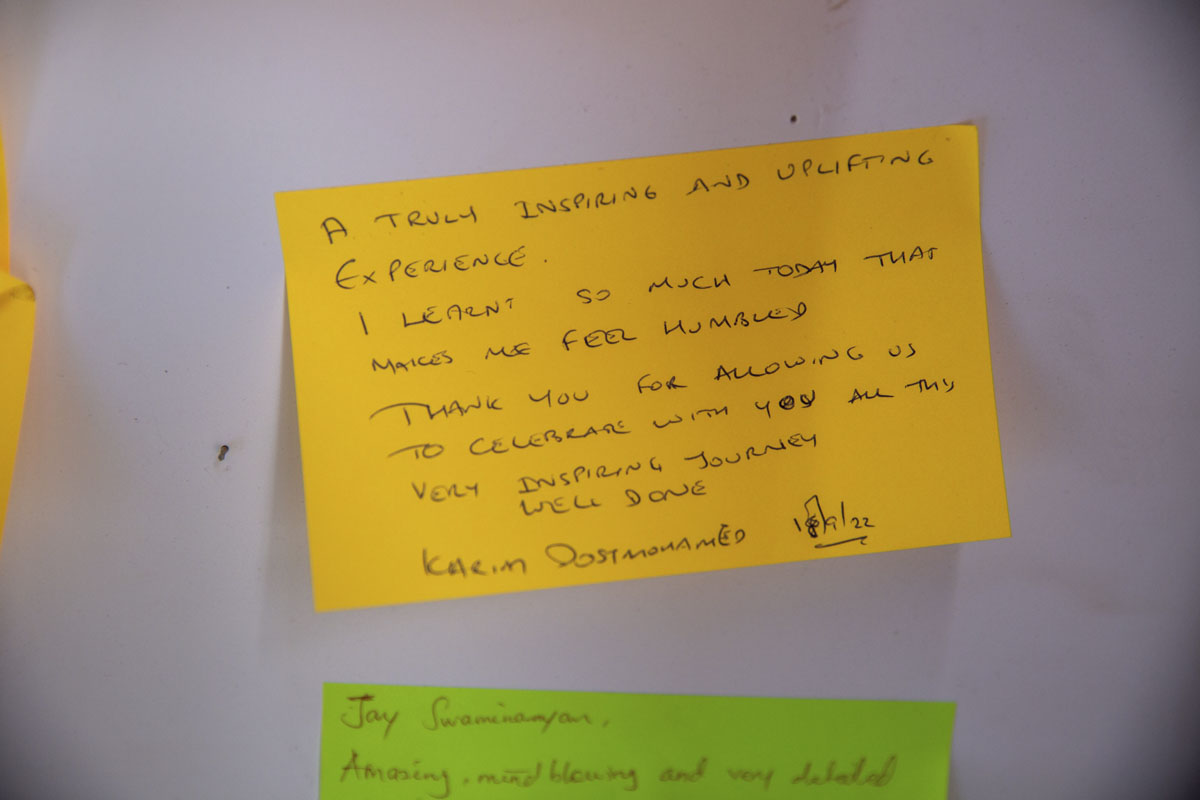 A TRULY INSPIRING AND UPLIFTING
EXPERIENCE.
I LEARNT SO MUCH TODAY THAT
MAKES ME FEEL HUMBLED
THANK YOU FOR ALLOWING US
TO CELEBRATE WITH YOU ALL THIS
VERY INSPIRING JOURNEY
WELL DONE
KARIM DOSTMOHAMED
Jay Swaminarayan,
Amazing, mind blowing and very detailed